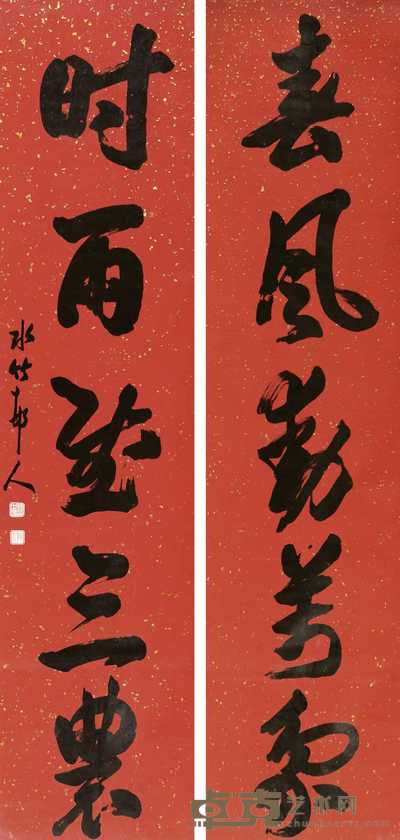 春風動萬象
时雨三農
水竹邨人
卓克艺术网